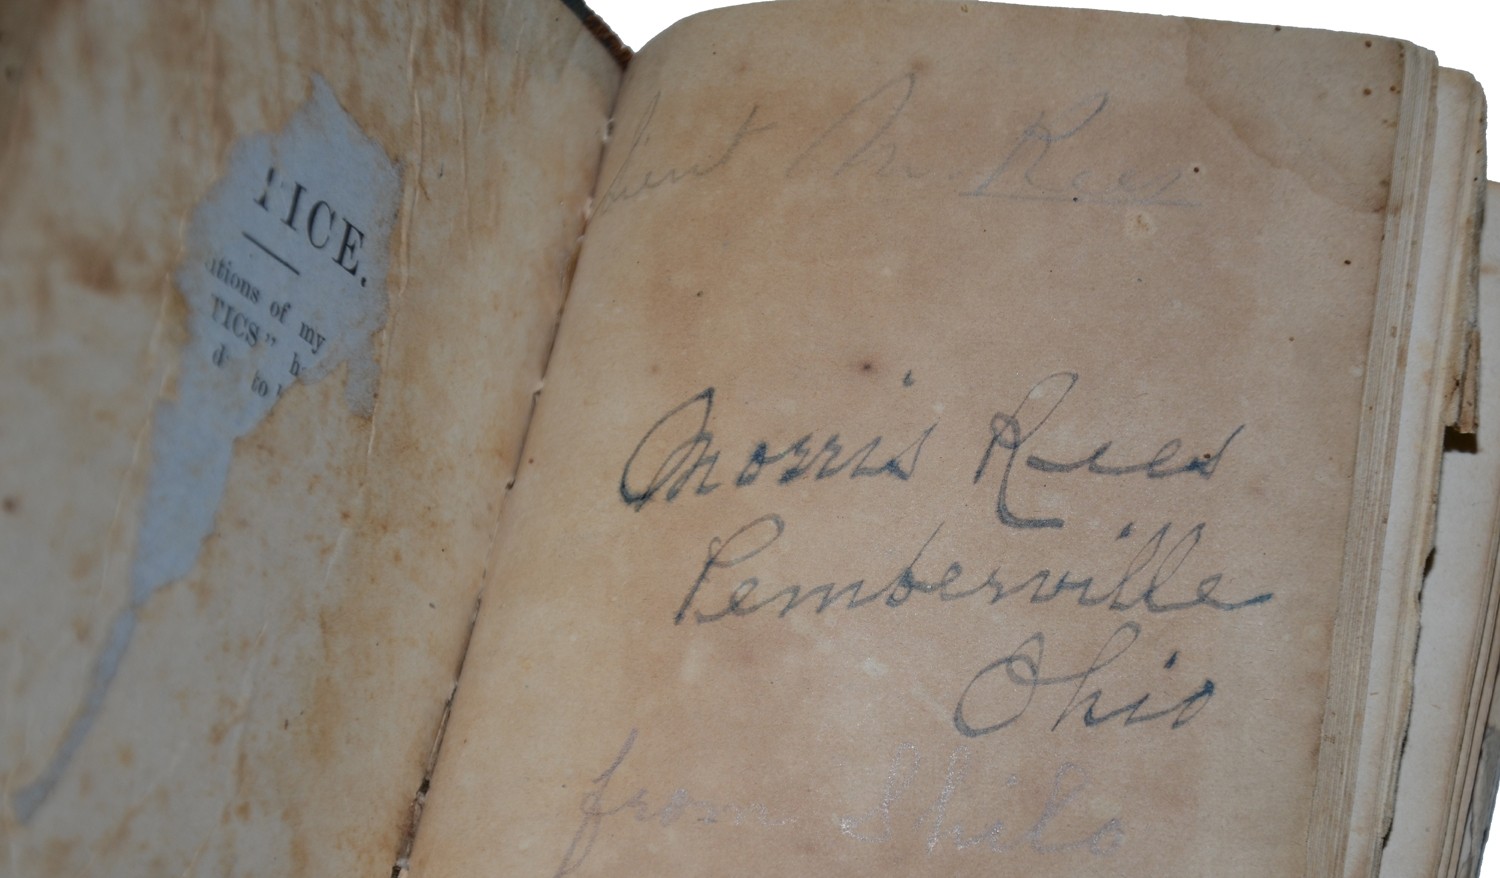 TICE.
ations of my
TICS" h
d to
M. Rees
Morris Rees
Pemberville
Ohio
from Philo